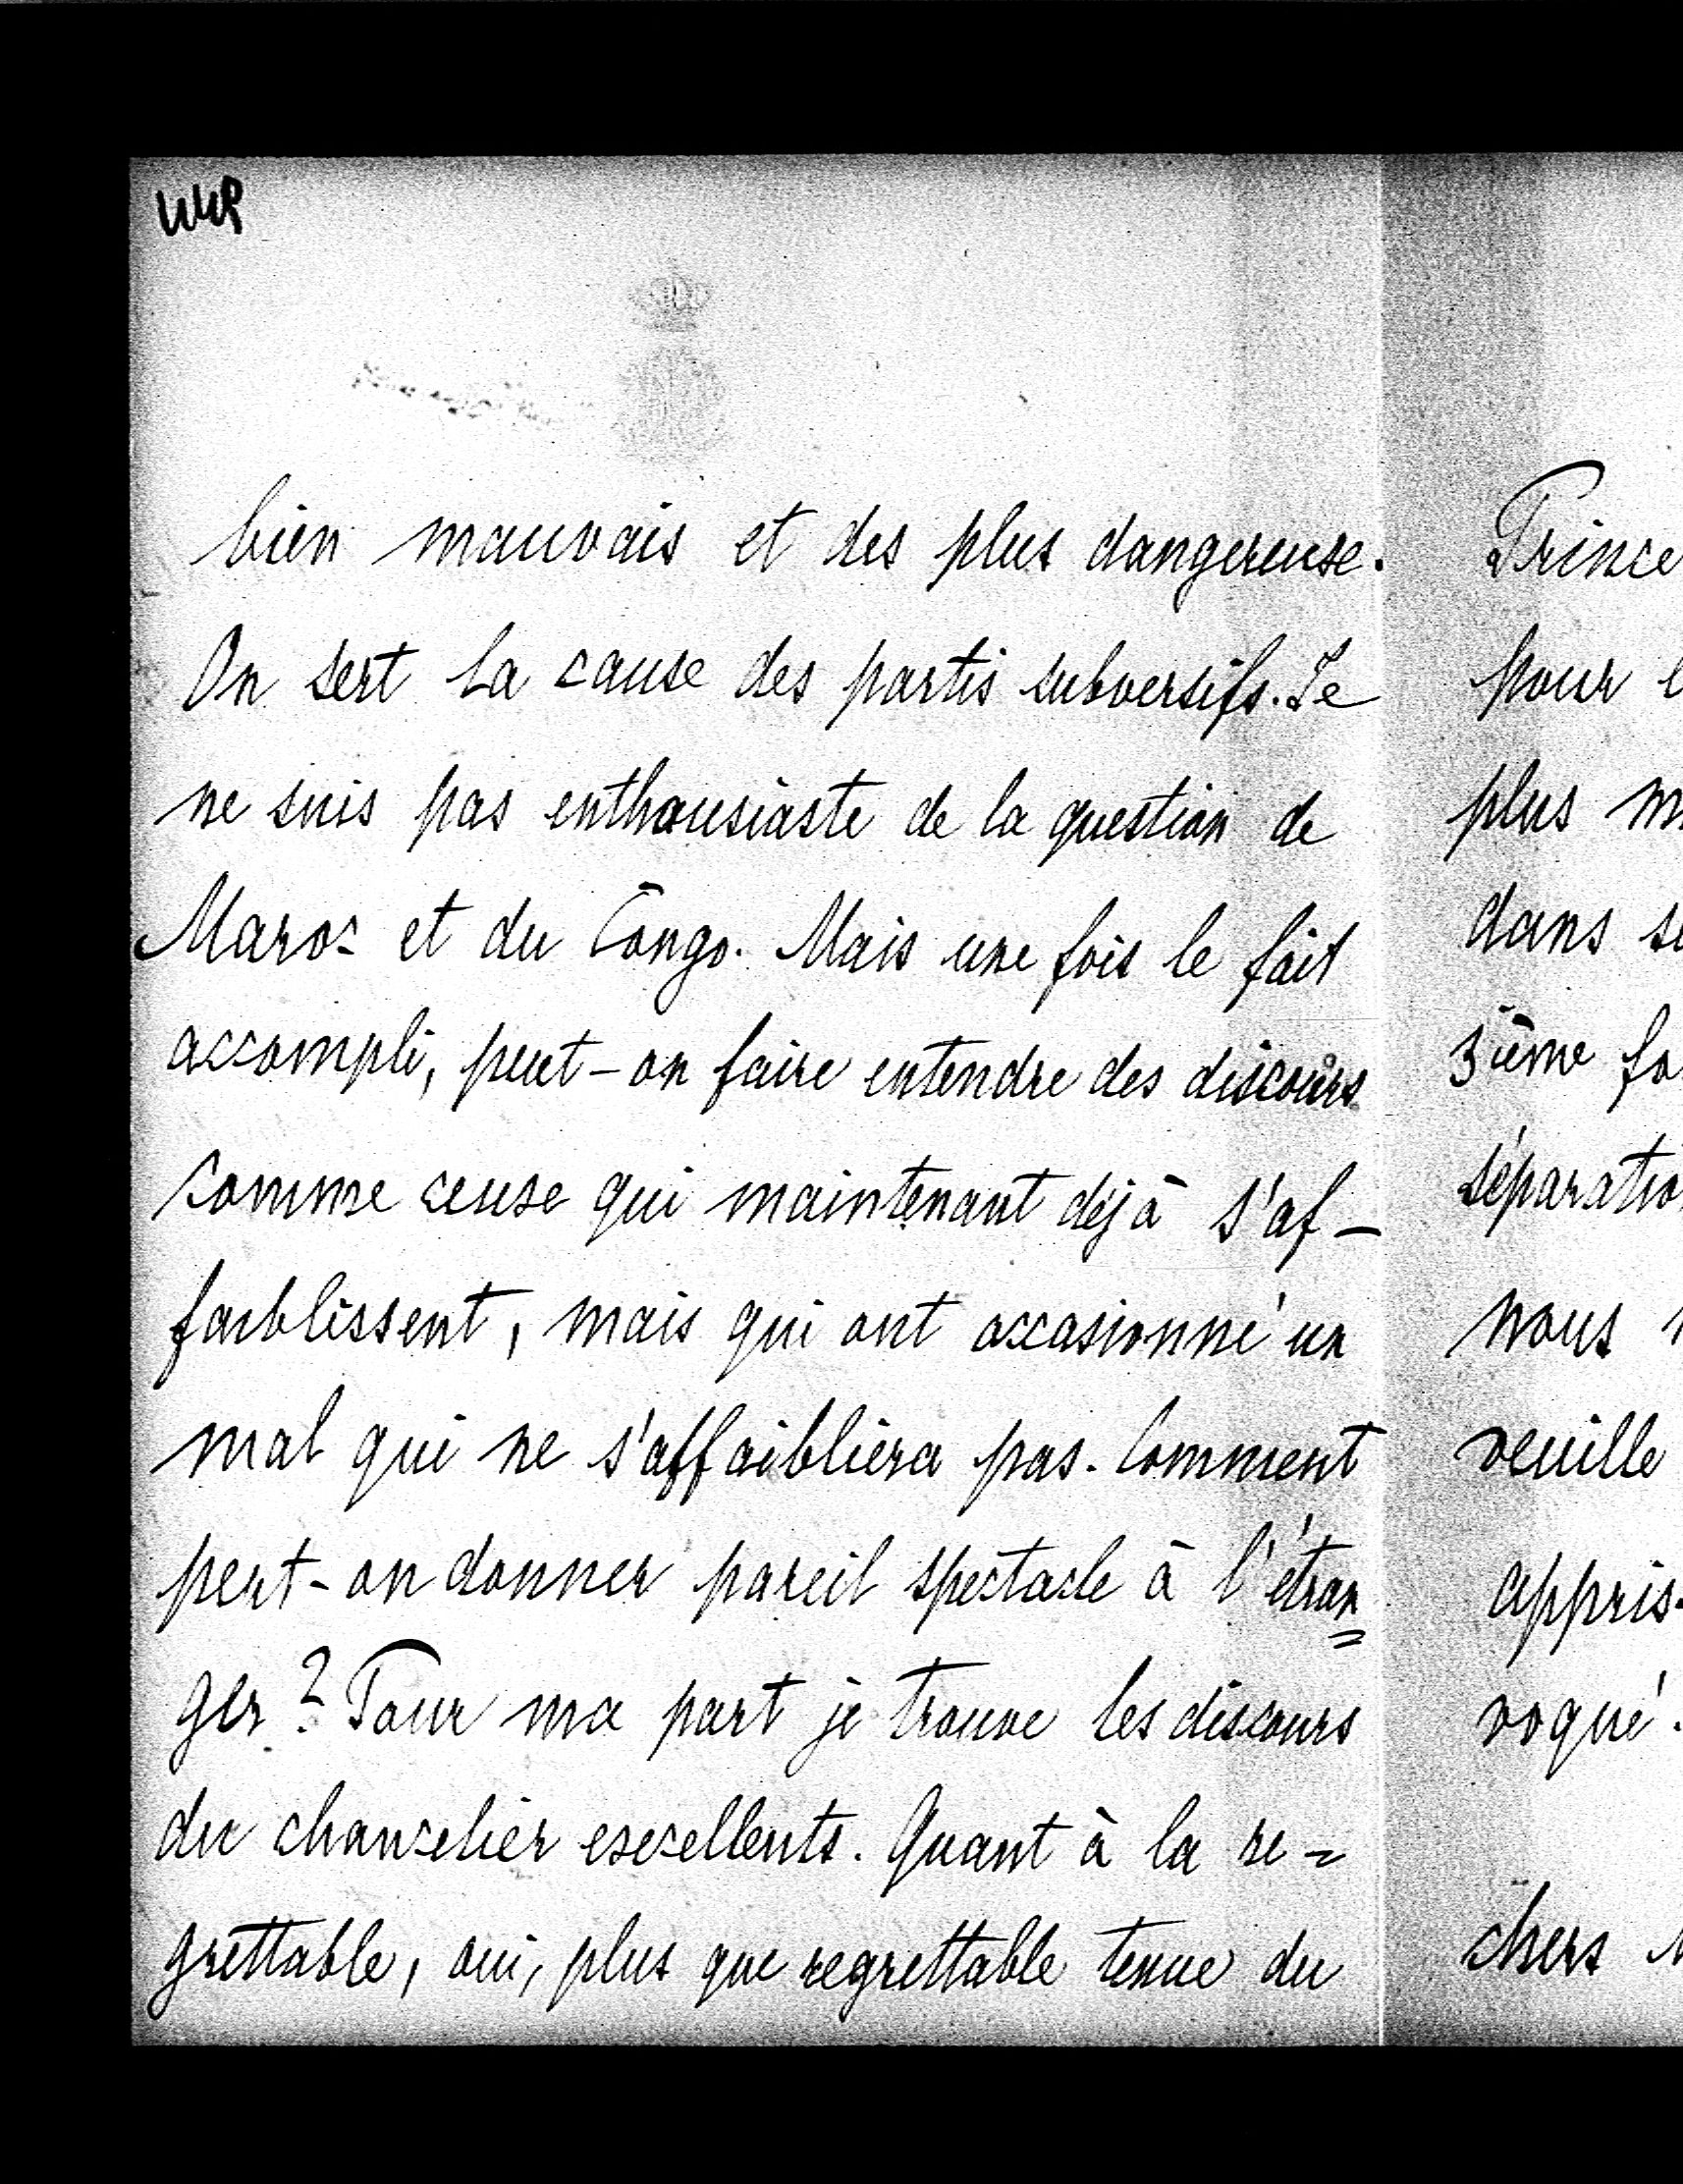 bien mauvais et des plus dangereuse.
On sert la cause des partis subversifs. Je
ne suis pas enthousiaste de la question de
Maroc et du Congo. Mais une fois le fait
accompli, peut-on faire entendre des discours
comme ceuxe qui maintenant déjà s'af-
faiblissent, mais qui ont occasionné un
mal qui ne s'affaibliera pas. Comment
peut-on donner pareil spectacle à l'étran=
ger? Pour ma part je trouve les discours
du chancelier excellents. Quant à la re=
grettable, oui, plus que regrettable tenue du
Prince
pour
plus
dans
3ième
séparatio
nous
veuille
appris.
voqué.
chers